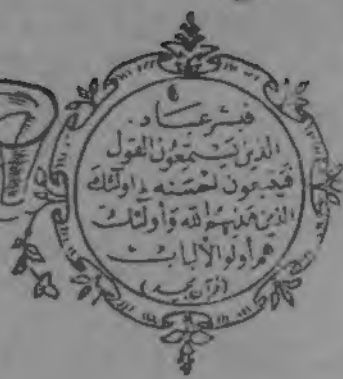 فبشر عباد .
الذين يستمعون القول
فيتبعون احسنه اولئك
الذين هديهم الله وأولئك
هم أولو الألباب
(قرآن مجيد)